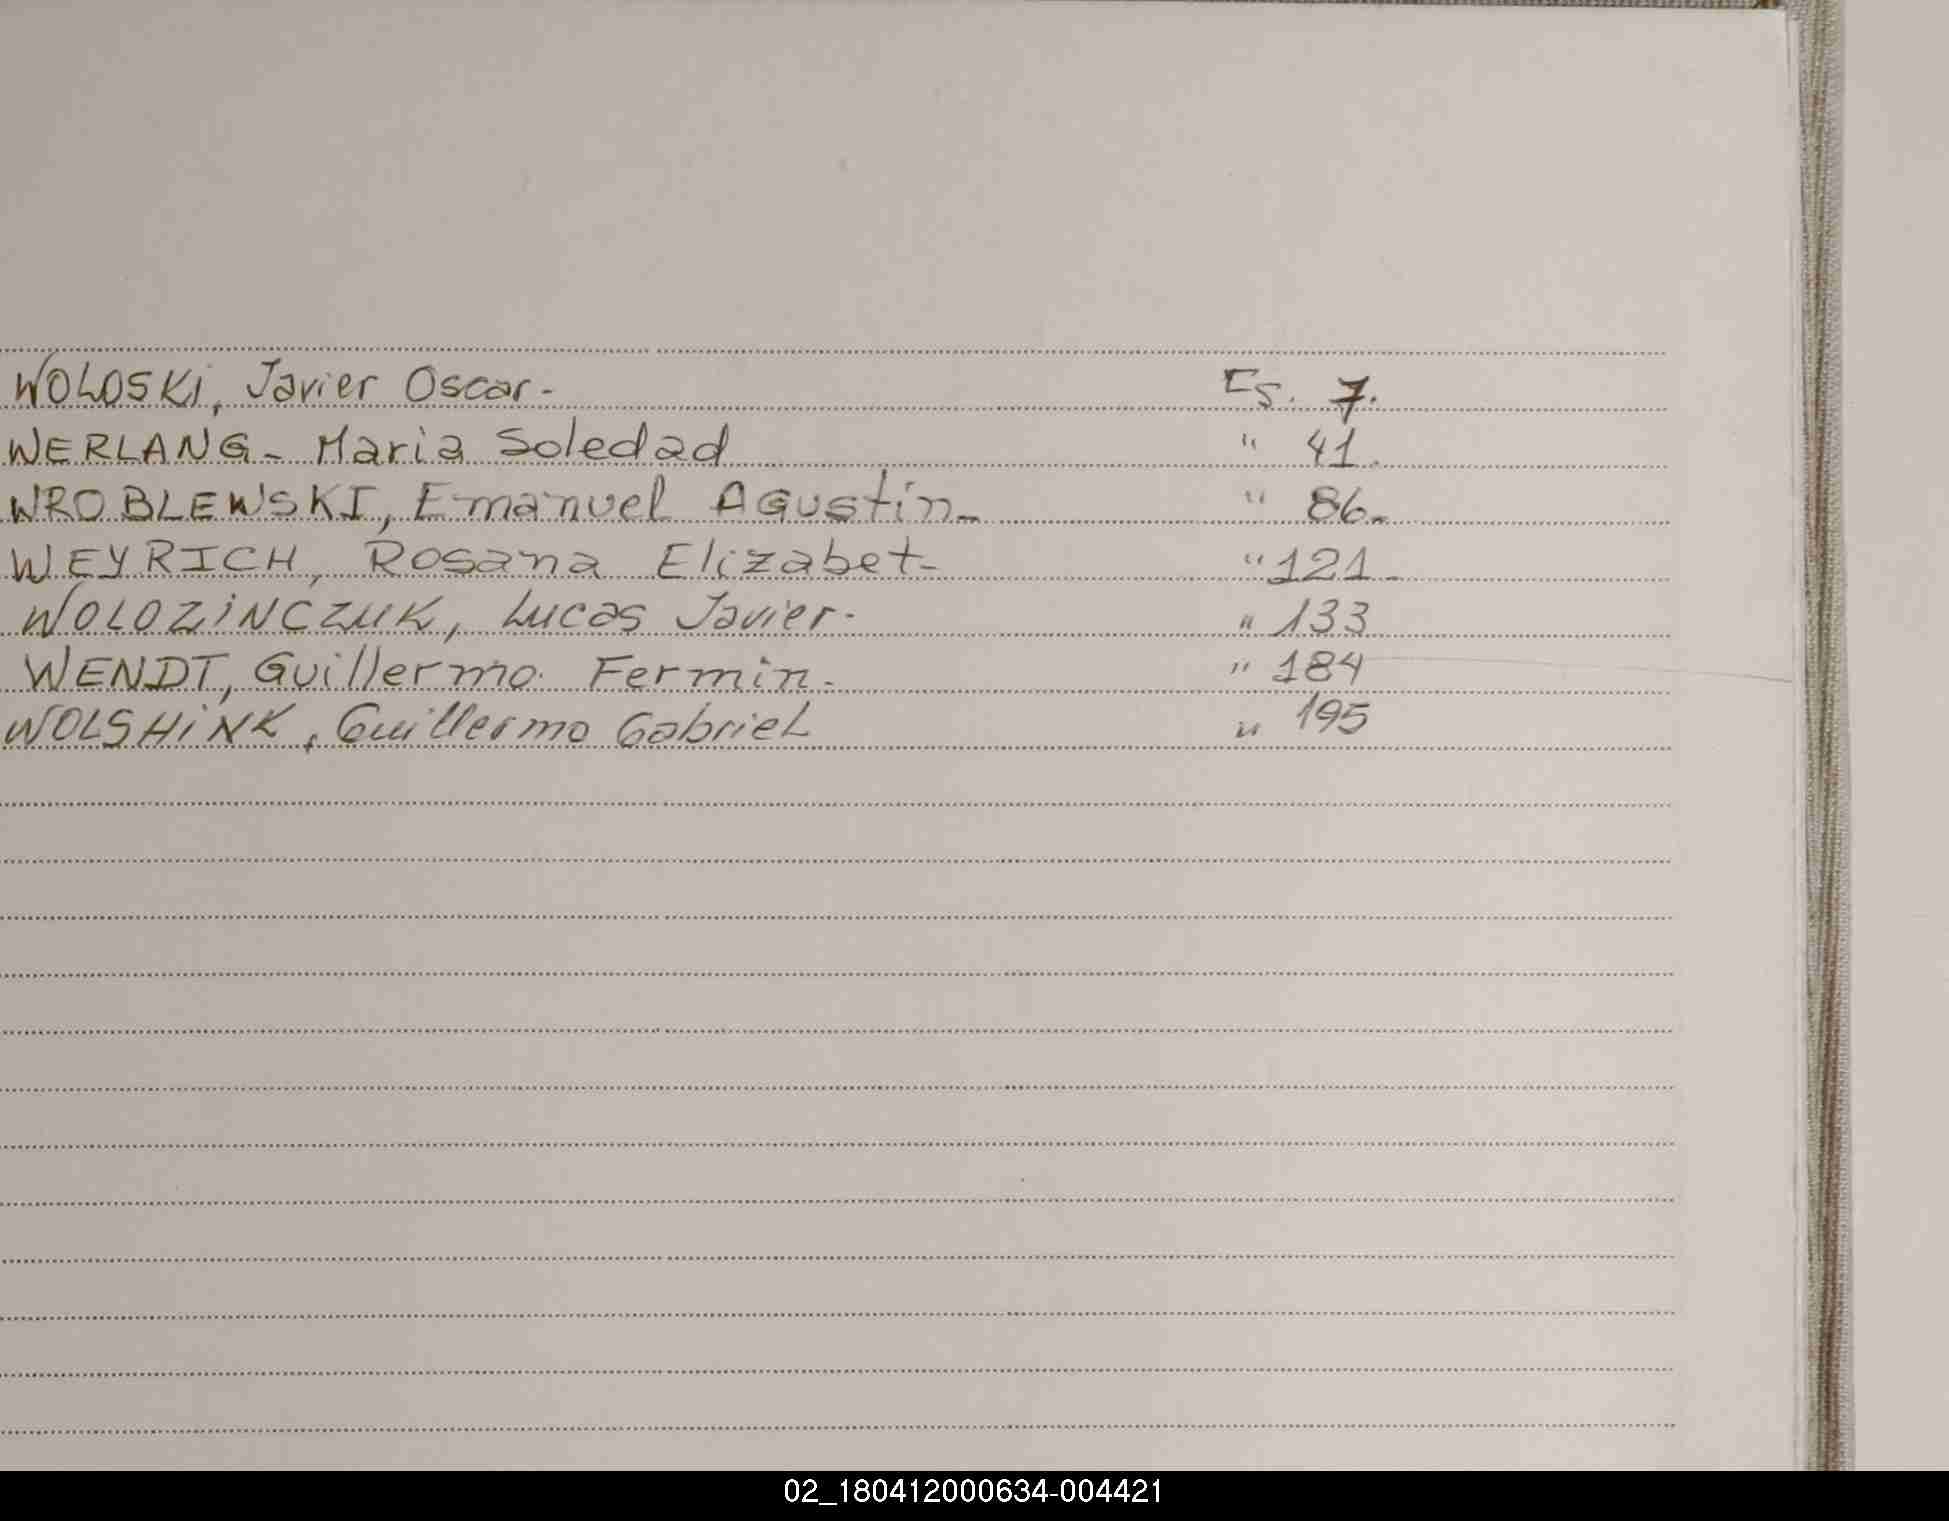 WOLOSKi, Javier Oscar- Es. 7.
WERLANG- Maria Soledad " 41.
WROBLEWSKI, Emanuel Agustin- " 86-
WEYRICH, Rosana Elizabet- " 121-
WOLOZiNCZUK, Lucas Javier- " 133
WENDT, Guillermo Fermin- " 184
WOLSHiNK, Guillermo Gabriel " 195
02_180412000634-004421